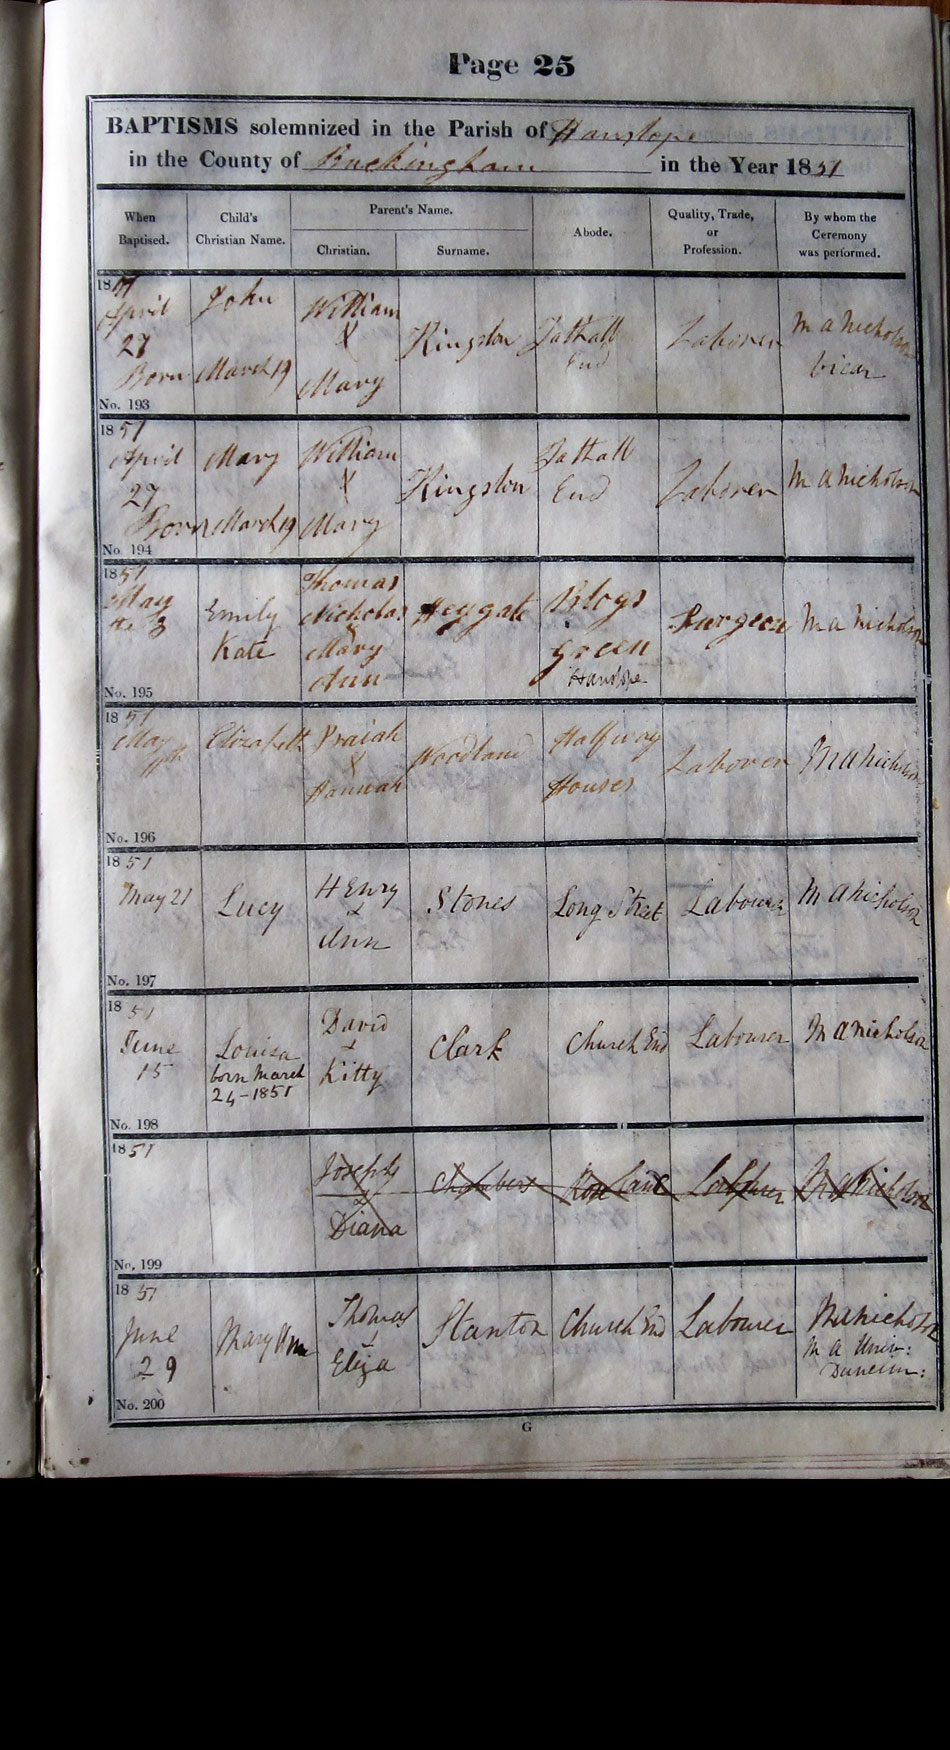 Page 25
BAPTISMS solemnized in the Parish of Hanslope
in the County of Buckingham in the Year 1851
When Baptised.
Child's Christian Name.
Parent's Name.
Christian.
Surname.
Abode.
Quality, Trade, or Profession.
By whom the Ceremony was performed.
1851
April
27
Born March 19
John
William
&
Mary
Kingston
Tathall
End
Laborer
M A Nicholson
Vicar
No. 193
1851
April
27
Born March 19
Mary
William
&
Mary
Kingston
Tathall
End
Laborer
M A Nicholson
No. 194
1851
May
3
Emily
Kate
Thomas
Nicholas
&
Mary
Ann
Heygate
Green
Hanslope
Surgeon
M A Nicholson
No. 195
1851
May
Elizabeth
Isaiah
&
Hannah
Woodland
Halfway
Houses
Laborer
M A Nicholson
No. 196
1851
May 21
Lucy
Henry
&
Ann
Stones
Long Street
Labourer
M A Nicholson
No. 197
1851
June
15
Louisa
born March
24-1851
David
&
Kitty
Clark
Church End
Labourer
M A Nicholson
No. 198
1851
Joseph
&
Diana
Chambers
Labourer
M A Nicholson
No. 199
1851
June
29
Mary Ann
Thomas
&
Eliza
Stanton
Church End
Labourer
M A Nicholson
M A Univ:
Dunelm:
No. 200
G